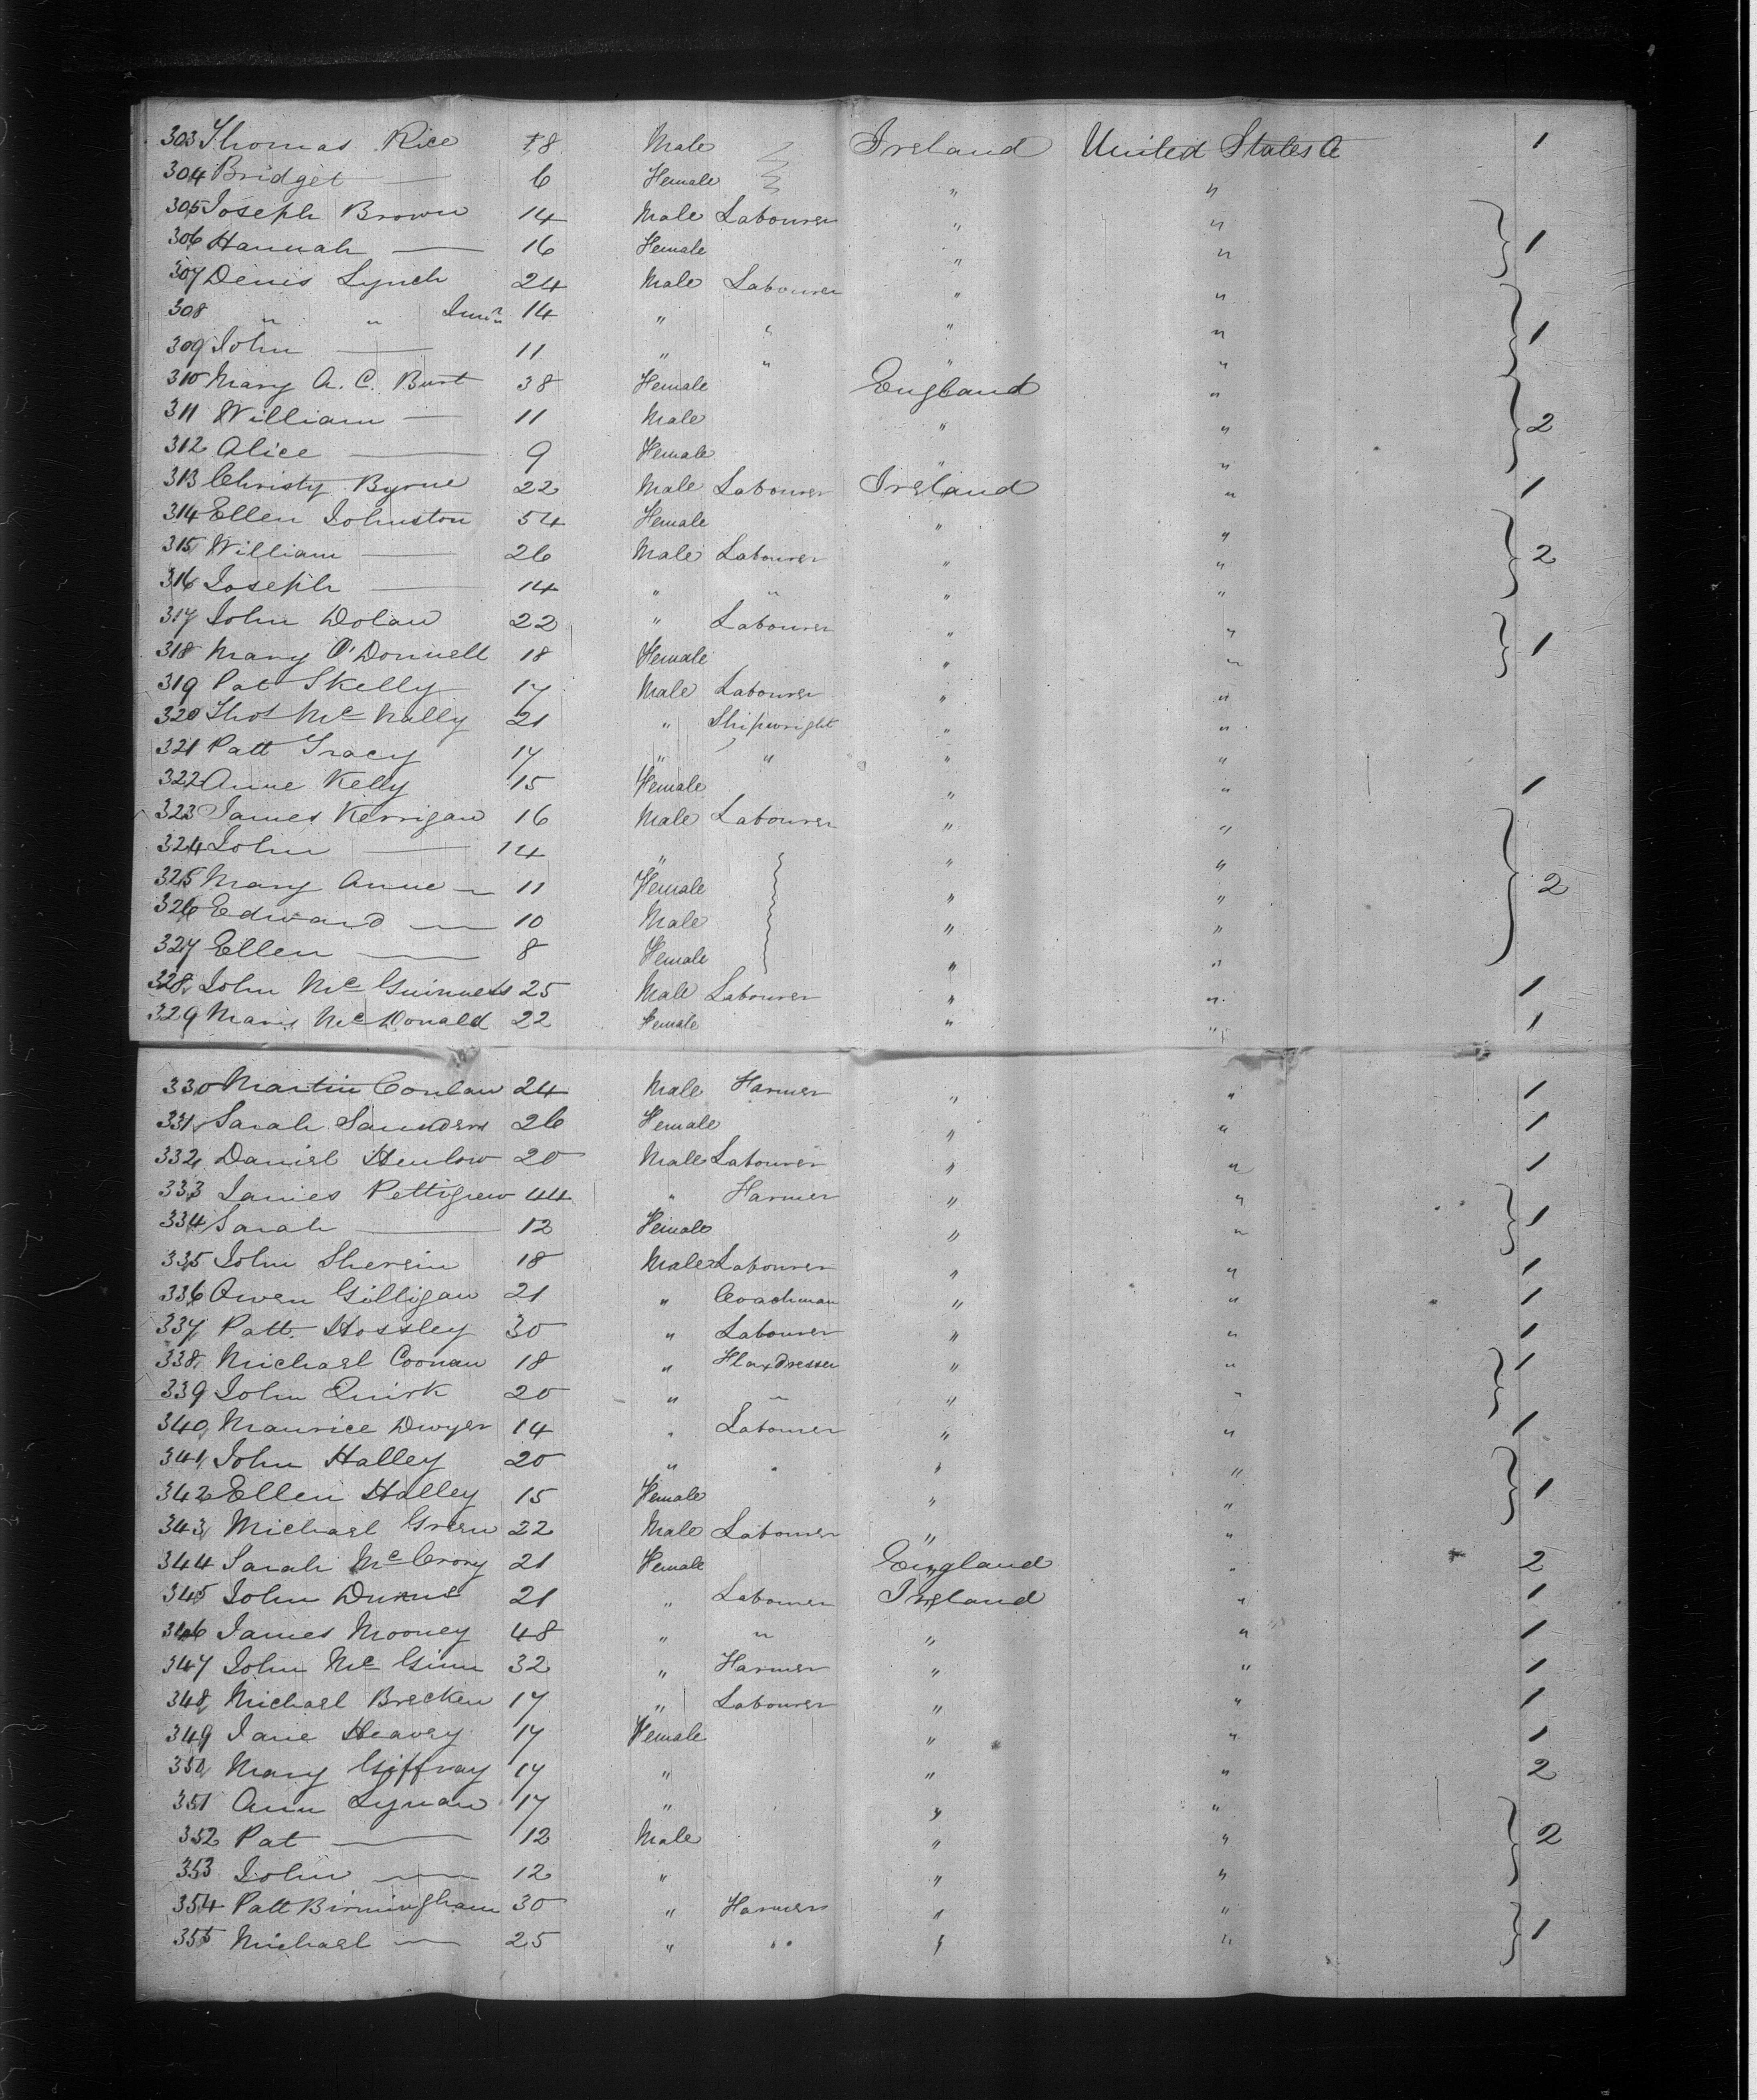 303 Thomas Rice 8 Male Ireland United States A 1
304 Bridget — 6 Female " "
305 Joseph Brown 14 Male Labourer " "
306 Hannah — 16 Female " " 1
307 Denis Lynch 24 Male Labourer " "
308 " " Junr 14 " " " " 1
309 John — 11 " " " "
310 Mary A. C. Burt 38 Female England "
311 William — 11 Male " " 2
312 Alice — 9 Female " "
313 Christy Byrne 22 Male Labourer Ireland " 1
314 Ellen Johnston 54 Female " "
315 William — 26 Male Labourer " " 2
316 Joseph — 14 " " " "
317 John Dolan 22 " Labourer " "
318 Mary O'Donnell 18 Female " " 1
319 Pat Skelly 17 Male Labourer " "
320 Thos McNally 21 " Shipwright " "
321 Patt Tracy 17 " " " "
322 Anne Kelly 15 Female " " 1
323 James Kerrigan 16 Male Labourer " "
324 John — 14 " " "
325 Mary Anne — 11 Female " " 2
326 Edward — 10 Male " "
327 Ellen — 8 Female " "
328 John McGuinness 25 Male Labourer " " 1
329 Mary McDonald 22 Female " " 1
330 Martin Conlan 24 Male Farmer " " 1
331 Sarah Saunders 26 Female " " 1
332 Daniel Henlow 20 Male Labourer " " 1
333 James Pettigrew 44 " Farmer " "
334 Sarah — 12 Female " " 1
335 John Sherein 18 Male Labourer " " 1
336 Owen Gilligan 21 " Coachman " " 1
337 Patt. Hossley 30 " Labourer " " 1
338 Michael Coonan 18 " Flaxdresser " " 1
339 John Quirk 20 " " " "
340 Maurice Dwyer 14 " Labourer " " 1
341 John Halley 20 " " " "
342 Ellen Halley 15 Female " " 1
343 Michael Green 22 Male Labourer " "
344 Sarah McCrory 21 Female England " 2
345 John Dunne 21 " Labourer Ireland " 1
346 James Mooney 48 " " " " 1
347 John McGinn 32 " Farmer " " 1
348 Michael Brecken 17 " Labourer " " 1
349 Jane Heavey 17 Female " " 1
350 Mary Giffray 17 " " " 2
351 Ann Lynan 17 " " "
352 Pat — 12 Male " " 2
353 John — 12 " " "
354 Patt Birmingham 30 " Farmer " "
355 Michael — 25 " " " " 1